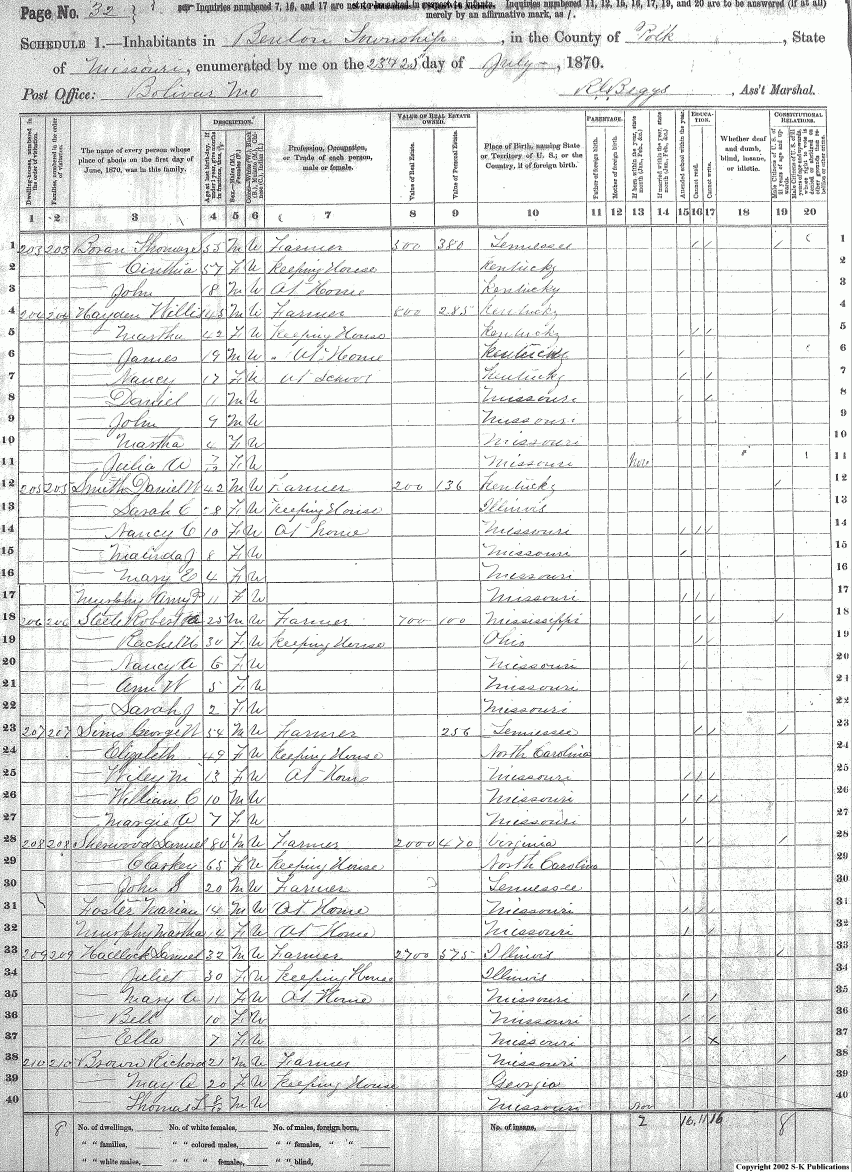 Page No. 32
Inquiries numbered 7, 16, and 17 are not to be asked in respect to infants. Inquiries numbered 11, 12, 15, 16, 17, 19, and 20 are to be answered (if at all)
merely by an affirmative mark, as /.
SCHEDULE 1.—Inhabitants in Benton Township, in the County of Polk, State
of Missouri, enumerated by me on the day of July, 1870.
Post Office: Bolivar Mo Ass't Marshal.
DESCRIPTION. VALUE OF REAL ESTATE OWNED. PARENTAGE. EDUCATION. CONSTITUTIONAL RELATIONS.
Dwelling-houses, numbered in the order of visitation.
Families, numbered in the order of visitation.
The name of every person whose place of abode on the first day of June, 1870, was in this family.
Profession, Occupation, or Trade of each person, male or female.
Value of Real Estate.
Value of Personal Estate.
Place of Birth, naming State or Territory of U. S.; or the Country, if of foreign birth.
Father of foreign birth.
Mother of foreign birth.
Attended school within the year.
Cannot read.
Cannot write.
Whether deaf and dumb, blind, insane, or idiotic.
1 2 3 4 5 6 7 8 9 10 11 12 13 14 15 16 17 18 19 20
1 203 203 Boran Thomas 55 M W Farmer 500 380 Tennessee / / / 1
2 — Cinthia 57 F W Keeping House Kentucky 2
3 — John 18 M W At Home Kentucky 3
4 204 204 Hayden Willis 45 M W Farmer 800 285 Kentucky / 4
5 — Martha 42 F W Keeping House Kentucky / / 5
6 — James 19 M W At Home Kentucky / 6
7 — Nancy 17 F W At School Kentucky / / 7
8 — Daniel 11 M W Missouri / / 8
9 — John 9 M W Missouri / 9
10 — Martha 4 F W Missouri 10
11 — Julia A F W Missouri Nov 11
12 205 205 Smith Daniel W 42 M W Farmer 200 136 Kentucky / 12
13 — Sarah C F W Keeping House Illinois 13
14 — Nancy C 10 F W At home Missouri / / / 14
15 — Malinda J 8 F W Missouri / 15
16 — Mary E 4 F W Missouri 16
17 Murphy Amy 11 F W Missouri / / / 17
18 206 206 Steele Robert 25 M W Farmer 700 100 Mississippi / / / 18
19 — Rachel 30 F W Keeping House Ohio / / 19
20 — Nancy A 6 F W Missouri / 20
21 — Ann W 5 F W Missouri 21
22 — Sarah J 2 F W Missouri 22
23 207 207 Sims George W 54 M W Farmer 256 Tennessee / / / 23
24 — Elizabeth 49 F W Keeping House North Carolina / / 24
25 — Wiley M 13 F W At Home Missouri / / / 25
26 — William C 10 M W Missouri / / / 26
27 — Margie A 7 F W Missouri / 27
28 208 208 Sherwood Samuel 80 M W Farmer 2000 470 Virginia / / / 28
29 — 65 F W Keeping House North Carolina 29
30 — John S 20 M W Farmer Tennessee 30
31 Foster Marian 14 M W At Home Missouri / / / 31
32 Murphy Martha 14 F W At Home Missouri / / 32
33 209 209 Samuel 32 M W Farmer 2700 575 Illinois / 33
34 — Juliet 30 F W Keeping House Illinois 34
35 — Mary A 11 F W At Home Missouri / / 35
36 — Bell 10 F W Missouri / / 36
37 — Ella 7 F W Missouri / x 37
38 210 210 Brown Richard 21 M W Farmer Missouri / 38
39 — May A 20 F W Keeping House Georgia 39
40 — Thomas L 8/12 M W Missouri Nov 40
8 No. of dwellings, No. of white females, No. of males, foreign born, No. of insane, 2 16 11 16 8
" " families, " " colored males, " " females, " "
" " white males, " " " females, " " blind,
Copyright 2002 S-K Publications